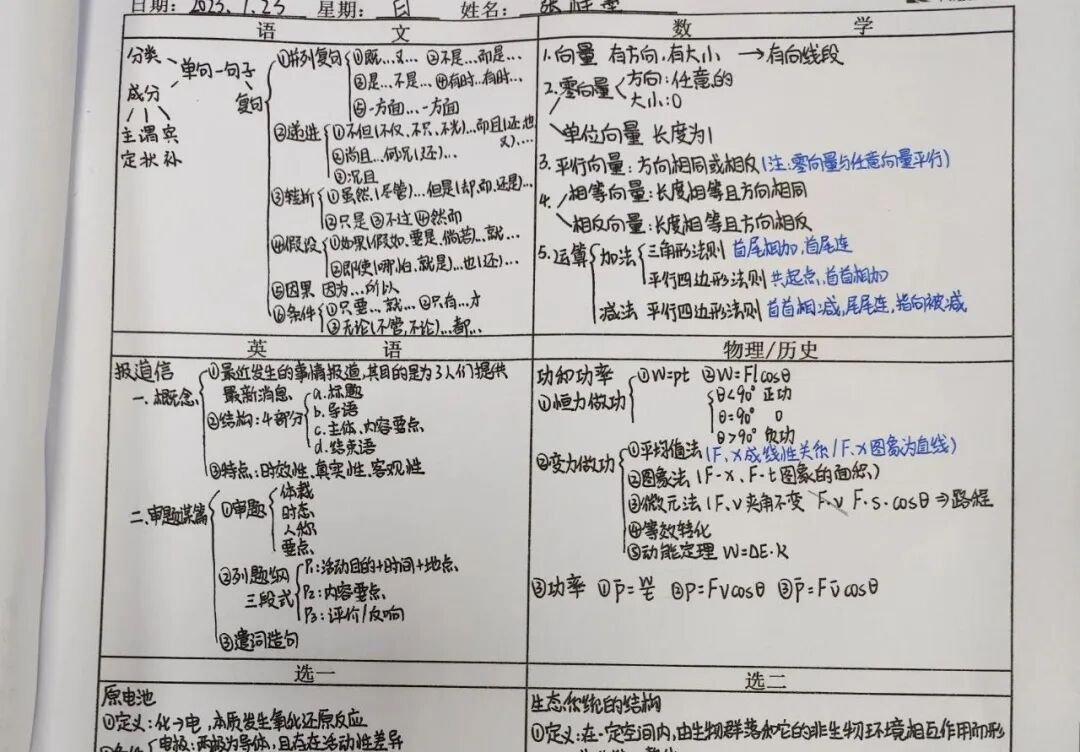 日期: 2025.1.25 星期: 日 姓名:
语 文
分类
单句—句子
成分
复句
主谓宾
定状补
①并列复句 ①既…又… ②不是…而是…
③是…不是… ④有时…有时…
⑤一方面…一方面
②递进 ①不但(不仅、不只、不光)…而且(还、也、又)…
②尚且…何况(还)…
③况且
③转折 ①虽然(尽管)…但是(却、而、还是)…
②只是 ③不过 ④然而
④假设 ①如果(假如、要是、倘若)…就…
②即使(哪怕、就是)…也(还)…
⑤因果 因为…所以
⑥条件 ①只要…就… ②只有…才
③无论(不管、不论)…都…
数 学
1.向量 有方向,有大小 →有向线段
2.零向量 方向:任意的
大小:0
单位向量 长度为1
3.平行向量:方向相同或相反(注:零向量与任意向量平行)
4.相等向量:长度相等且方向相同
相反向量:长度相等且方向相反
5.运算 加法 三角形法则 首尾相加,首尾连
平行四边形法则 共起点,首首相加
减法 平行四边形法则 首首相减,尾尾连,指向被减
英 语
报道信
一.概念 ①最近发生的事情报道,其目的是为了人们提供
最新消息
②结构:4部分 a.标题
b.导语
c.主体、内容要点
d.结束语
③特点:时效性、真实性、客观性
二.审题谋篇 ①审题 体裁
时态
人称
要点
②列题纲 三段式 P₁:活动目的+时间+地点
P₂:内容要点
P₃:评价/反响
③遣词造句
物理/历史
功和功率 ①W=pt ②W=Flcosθ
①恒力做功 θ<90° 正功
θ=90° 0
θ>90° 负功
②变力做功 ①平均值法(F、x成线性关系/F、x图象为直线)
②图象法(F-x、F-t图象的面积)
③微元法(F、v夹角不变 F·v F·s·cosθ⇒路程
④等效转化
⑤动能定理 W=ΔE·k
③功率 ①p̄=W/t ②p=Fvcosθ ③p̄=Fv̄cosθ
选一
原电池
①定义:化→电,本质发生氧化还原反应
电极:两极为导体,且存在活动性差异
选二
生态系统的结构
①定义:在一定空间内,由生物群落和它的非生物环境相互作用而形